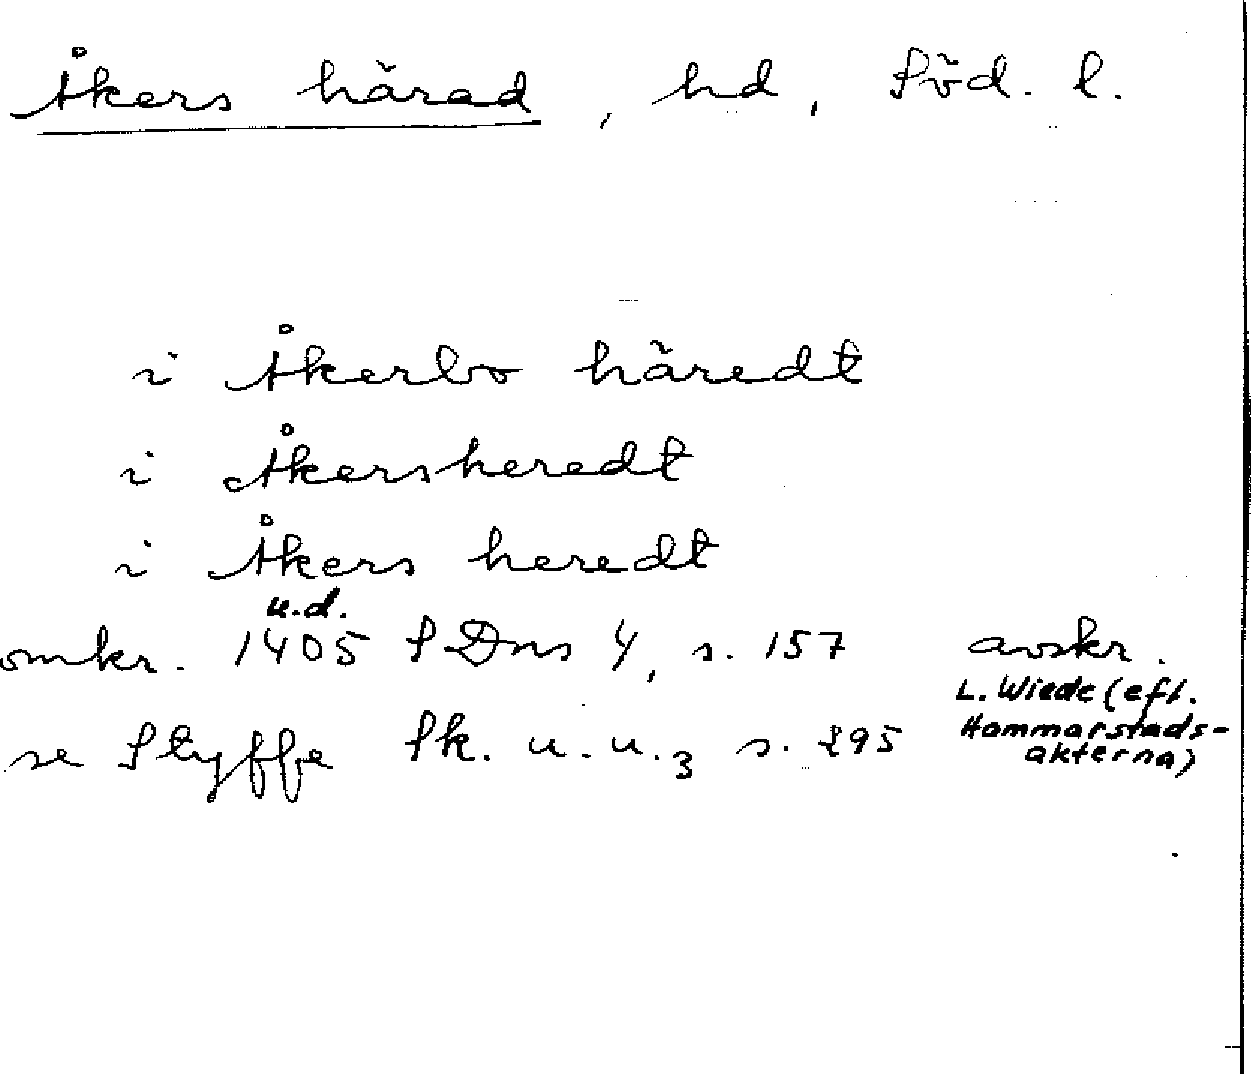 Åkers härad, hd, Söd. l.
i Åkerbo häredt
i Åkersheredt
i Åkers heredt
u.d.
omkr. 1405 SDns 4, s. 157 avskr.
L. Wiede (eft.
Hammarstads-
akterna)
se Styffe Sk. u. u. 3 s. 295